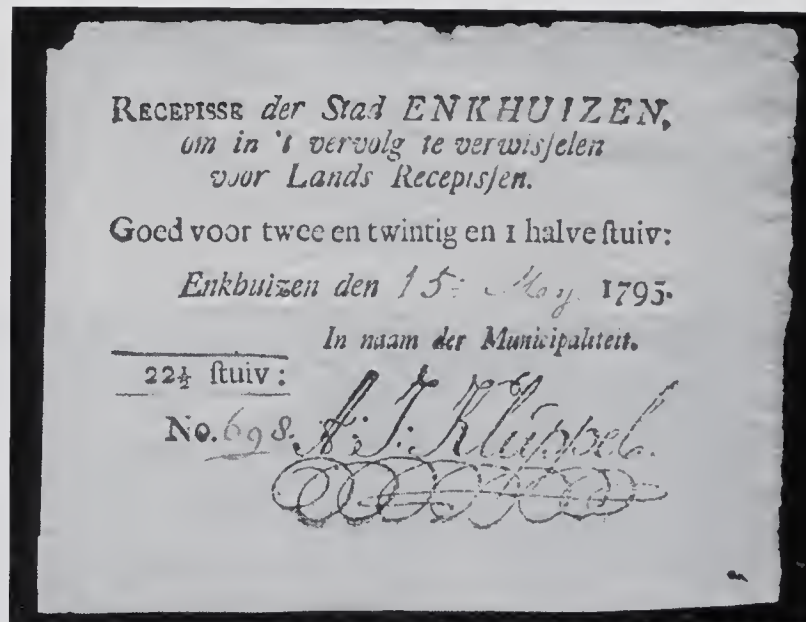 RECEPISSE der Stad ENKHUIZEN,
om in 't vervolg te verwisſelen
voor Lands Recepisſen.
Goed voor twee en twintig en 1 halve ſtuiv:
Enkhuizen den 15: May 1795.
In naam der Municipaliteit.
22½ ſtuiv:
No. 698. A: J: Klüppel.